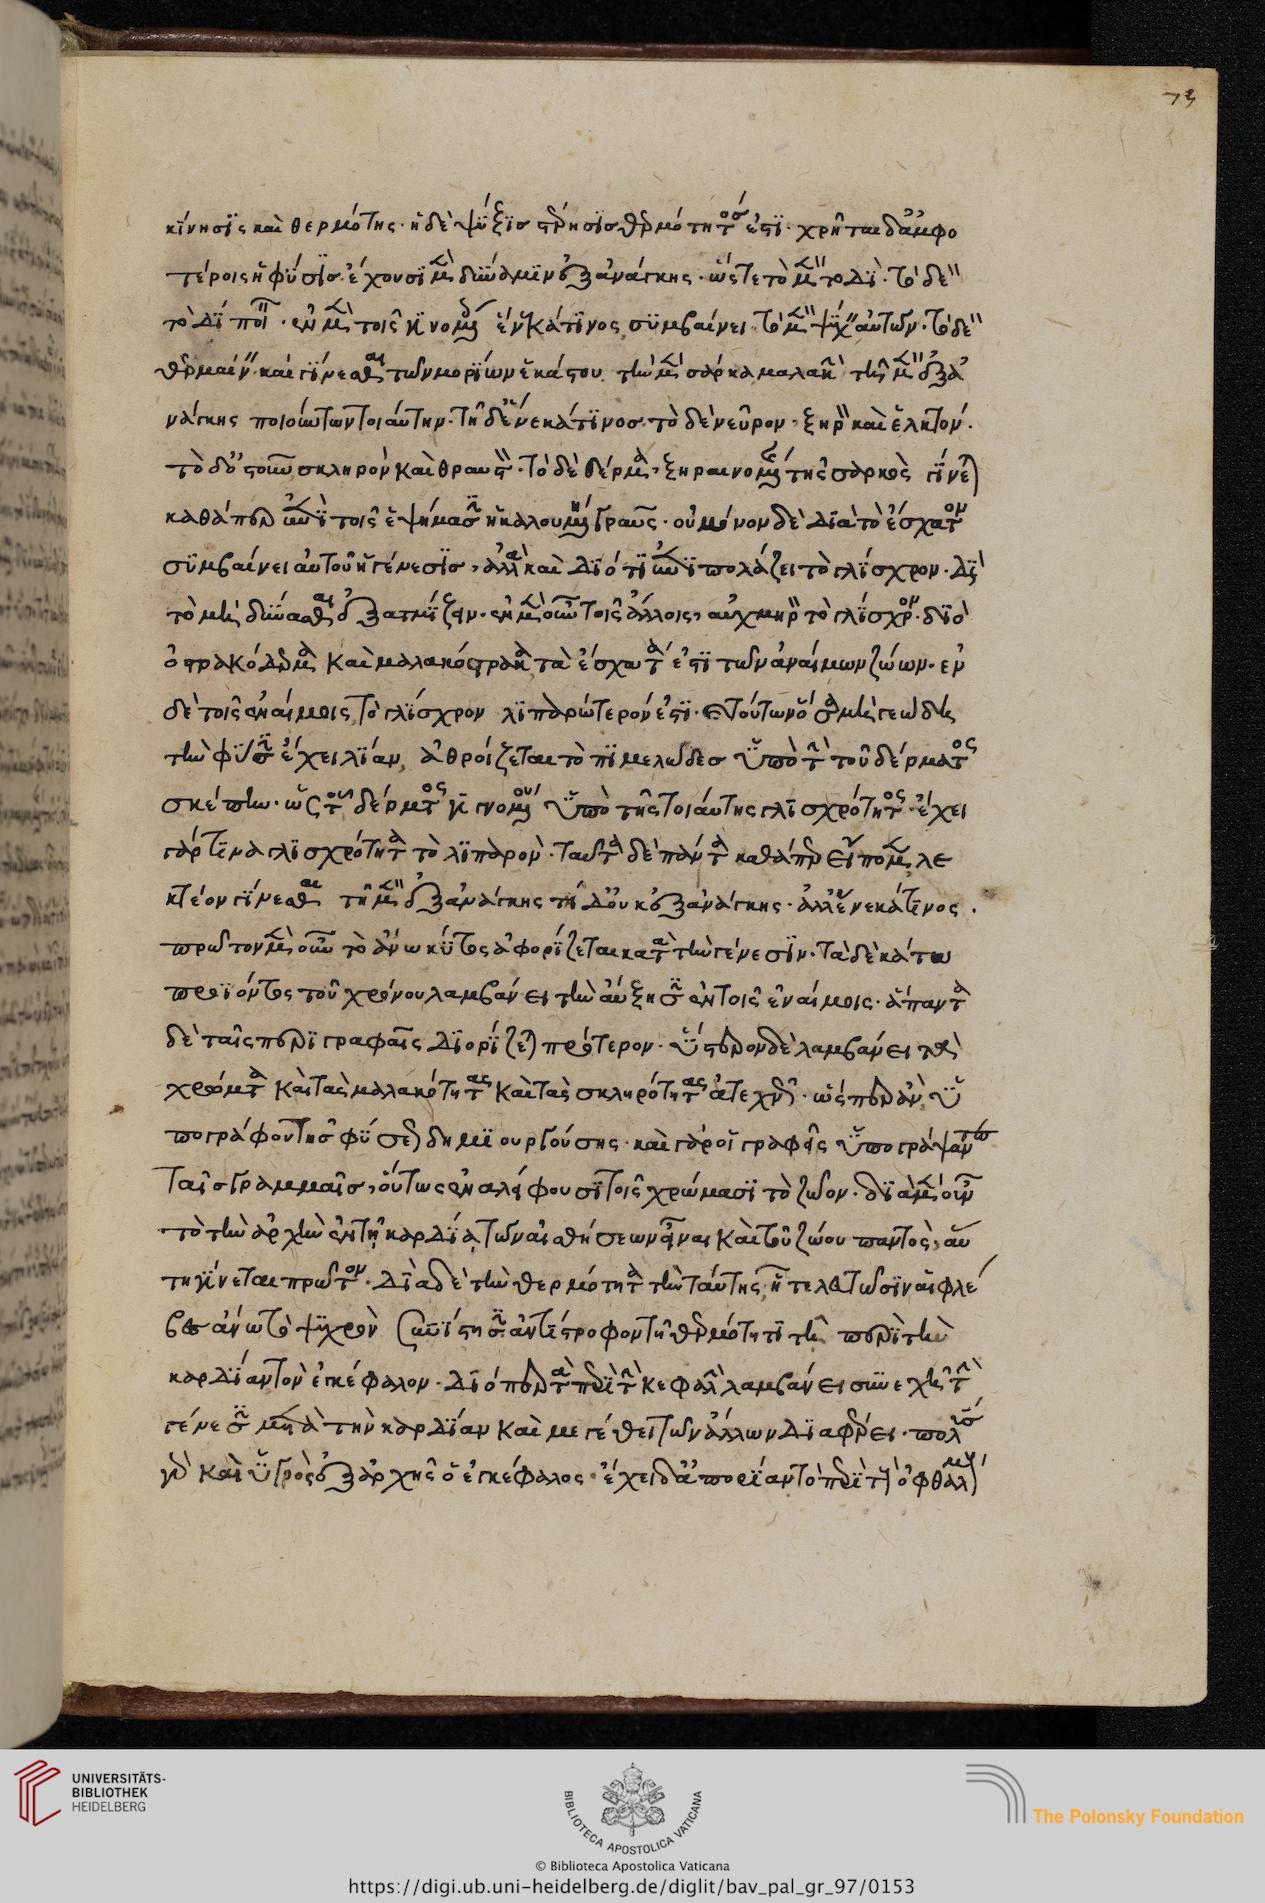 73
κίνησις καὶ θερμότης· ἡ δὲ ψύξις στέρησις θερμότητός ἐστι· χρῆται δ' ἀμφο
τέροις ἡ φύσις ἔχουσι μὲν δύναμιν ἐξ ἀνάγκης· ὥστε τὸ μὲν τοδὶ· τὸ δὲ
τοδὶ ποιεῖν· ἐν μὲν τοῖς γινομένοις ἕνεκά τινος συμβαίνει τὸ μὲν ψύχειν αὐτῶν· τὸ δὲ
θερμαίνειν καὶ γίνεσθαι τῶν μορίων ἕκαστον τὴν μὲν σάρκα μαλακὴν τῇ μὲν ἐξ ἀ
νάγκης ποιούντων τοιαύτην· τῇ δ' ἕνεκά τινος· τὸ δὲ νεῦρον ξηρὸν καὶ ἑλκτόν·
τὸ δ' ὀστοῦν σκληρὸν καὶ θραυστόν· τὸ δὲ δέρμα ξηραινομένης τῆς σαρκὸς γίνεται
καθάπερ ἐπὶ τοῖς ἑψήμασιν ἡ καλουμένη γραῦς· οὐ μόνον δὲ διὰ τὸ ἔσχατον
συμβαίνει αὐτοῦ ἡ γένεσις, ἀλλὰ καὶ διότι ἐπιπολάζει τὸ γλίσχρον· διὰ
τὸ μὴ δύνασθαι ἐξατμίζειν· ἐν μὲν οὖν τοῖς ἄλλοις αὐχμηρὸν τὸ γλίσχρον· διὸ
ὀστρακόδερμα καὶ μαλακόστρακα τὰ ἔσχατά ἐστι τῶν ἀναίμων ζώων· ἐν
δὲ τοῖς ἐναίμοις τὸ γλίσχρον λιπαρώτερόν ἐστι· τούτων ὅσα μὴ γεώδη
τὴν φύσιν ἔχει λίαν, ἀθροίζεται τὸ πιμελῶδες ὑπὸ τὴν τοῦ δέρματος
σκέπην· ὡς τοῦ δέρματος γινομένου ὑπὸ τῆς τοιαύτης γλισχρότητος· ἔχει
γάρ τινα γλισχρότητα τὸ λιπαρόν· ταῦτα δὲ πάντα καθάπερ εἴπομεν λε
κτέον γίνεσθαι τῇ μὲν ἐξ ἀνάγκης τῇ δ' οὐκ ἐξ ἀνάγκης· ἀλλ' ἕνεκά τινος·
πρῶτον μὲν οὖν τὸ ἄνω κύτος ἀφορίζεται κατὰ τὴν γένεσιν· τὰ δὲ κάτω
προϊόντος τοῦ χρόνου λαμβάνει τὴν αὔξησιν ἐν τοῖς ἐναίμοις· ἅπαντα
δὲ ταῖς περιγραφαῖς διορίζεται πρότερον· ὕστερον δὲ λαμβάνει τὰ
χρώματα καὶ τὰς μαλακότητας καὶ τὰς σκληρότητας ἀτεχνῶς· ὥσπερ ἂν ὑ
πογράφοντης φύσεως δημιουργούσης· καὶ γὰρ οἱ γραφεῖς ὑπογράψαντες
ταῖς γραμμαῖς, οὕτως ἐναλείφουσι τοῖς χρώμασι τὸ ζῶον· διὰ μὲν οὖν
τὸ τὴν ἀρχὴν ἐν τῇ καρδίᾳ τῶν αἰσθήσεων εἶναι καὶ τοῦ ζώου παντὸς, αὕ
τη γίνεται πρῶτον· διὰ δὲ τὴν θερμότητα τὴν ταύτης, ᾗ τελευτῶσιν αἱ φλέ
βες ἄνω τὸ ψυχρὸν συνίστησιν ἀντίστροφον τῇ θερμότητι τῇ περὶ τὴν
καρδίαν τὸν ἐγκέφαλον· διόπερ τὰ περὶ τὴν κεφαλὴν λαμβάνει συνεχῆ τὴν
γένεσιν μετὰ τὴν καρδίαν καὶ μεγέθει τῶν ἄλλων διαφέρει· πολὺς
γὰρ καὶ ὑγρὸς ἐξ ἀρχῆς ὁ ἐγκέφαλος· ἔχει δ' ἀπορίαν τὸ περὶ τοὺς ὀφθαλμοὺς
UNIVERSITÄTS-
BIBLIOTHEK
HEIDELBERG
BIBLIOTECA APOSTOLICA VATICANA
The Polonsky Foundation
© Biblioteca Apostolica Vaticana
https://digi.ub.uni-heidelberg.de/diglit/bav_pal_gr_97/0153